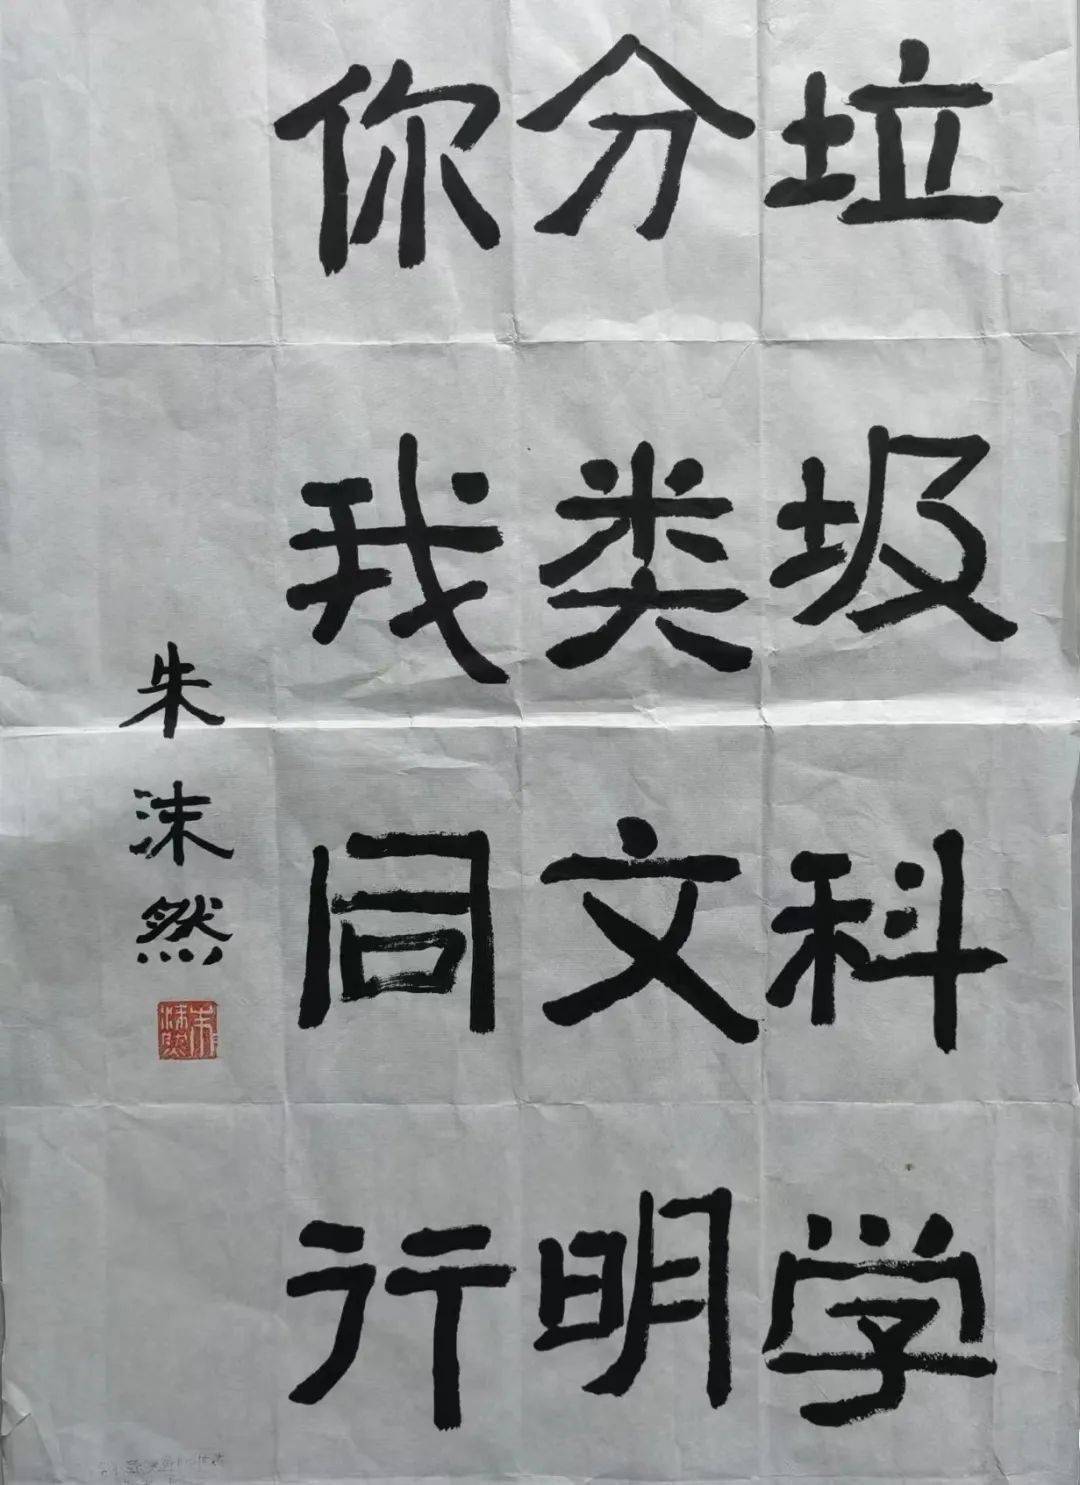 垃圾科学
分类文明
你我同行
朱沫然
朱沫然